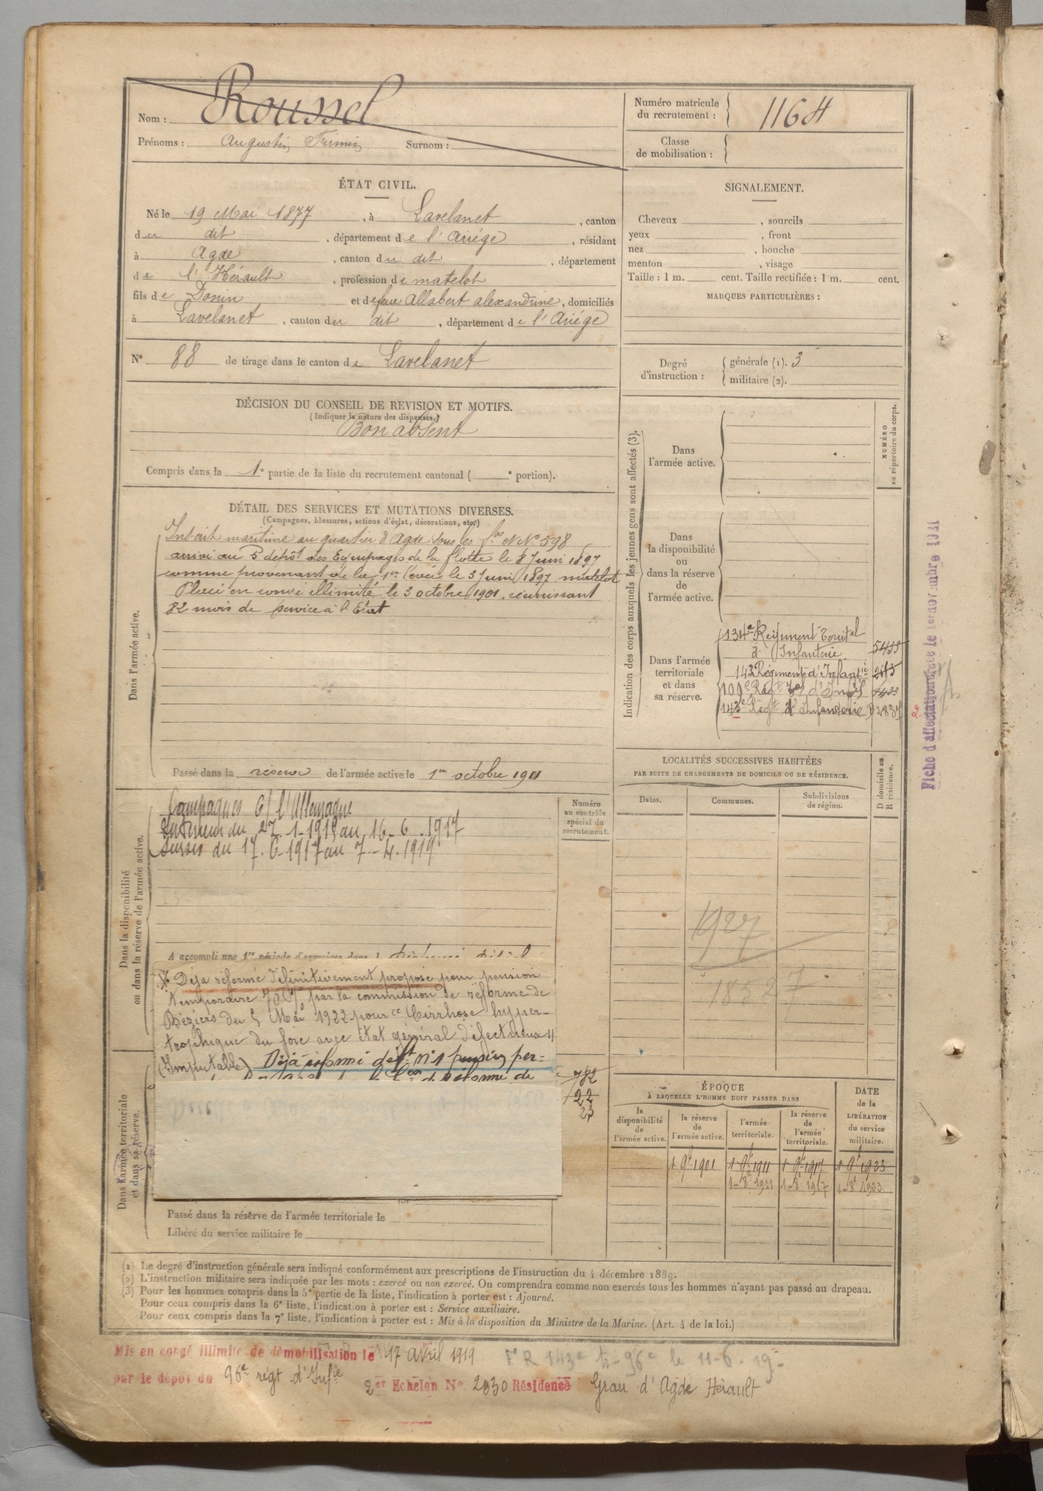 Nom : Roussel
Prénoms : Augustin Firmin Surnom :
Numéro matricule du recrutement : 1164
Classe de mobilisation :
ÉTAT CIVIL.
Né le 19 Mai 1877, à Lavelanet, canton
du dit, département de l'Ariége, résidant
à Agde, canton du dit, département
de l'Hérault, profession de matelot
fils de Donin et de feue Allabert alexandrine, domiciliés
à Lavelanet, canton du dit, département de l'Ariége
N° 88 de tirage dans le canton de Lavelanet
DÉCISION DU CONSEIL DE REVISION ET MOTIFS.
(Indiquer la nature des dispenses.)
Bon absent
Compris dans la 1e partie de la liste du recrutement cantonal ( e portion).
SIGNALEMENT.
Cheveux , sourcils
yeux , front
nez , bouche
menton , visage
Taille : 1 m. cent. Taille rectifiée : 1 m. cent.
MARQUES PARTICULIÈRES :
Degré d'instruction : générale (1). 3
militaire (2).
DÉTAIL DES SERVICES ET MUTATIONS DIVERSES.
(Campagnes, blessures, actions d'éclat, décorations, etc.)
Dans l'armée active.
Inscrit maritime au quartier d'Agde sous les N° 598
arrivé au 5e dépôt des Equipages de la flotte le 8 Juin 1897
comme provenant de la 1re levée le 5 Juin 1897 matelot
Placé en congé illimité le 3 octobre 1901, réunissant
82 mois de service à l'Etat
Passé dans la réserve de l'armée active le 1er octobre 1901
Indication des corps auxquels les jeunes gens sont affectés (3).
NUMÉRO au répertoire du corps.
Dans l'armée active.
Dans la disponibilité ou dans la réserve de l'armée active.
Dans l'armée territoriale et dans sa réserve.
134e Régiment Territal
d'Infanterie
143e Régiment d'Infantie
109e Régt
143e Régt d'Infanterie
Fiche d'affectation
LOCALITÉS SUCCESSIVES HABITÉES
PAR SUITE DE CHANGEMENTS DE DOMICILE OU DE RÉSIDENCE.
Dates. Communes. Subdivisions de région. D domicile ou R résidence.
1927
18527
Dans la disponibilité ou dans la réserve de l'armée active.
Numéro au contrôle spécial du recrutement.
Campagnes C/ l'Allemagne
Intérieur du 27-1-1917 au 16-6-1917
Sursis du 17-6-1917 au 7-4-1919
A accompli une 1re période d'exercices dans l
Déjà réformé définitivement proposé pour pension
temporaire par la commission de réforme de
Béziers du 5 Mai 1922 pour "Cirrhose hyper-
trophique du foie avec état général défectueux"
(Imputable) Déjà réformé déft n°1 pension per-
782
22
23
Dans l'armée territoriale et dans sa réserve.
Passé dans la réserve de l'armée territoriale le
Libéré du service militaire le
ÉPOQUE
À LAQUELLE L'HOMME DOIT PASSER DANS
la disponibilité de l'armée active.
la réserve de l'armée active.
l'armée territoriale.
la réserve de l'armée territoriale.
DATE de la LIBÉRATION du service militaire.
1 8e 1901 1 8e 1911 1 8e 1917 1 8e 1923
1-8e 1911 1-8e 1917 1-8e 1923
(1) Le degré d'instruction générale sera indiqué conformément aux prescriptions de l'instruction du 4 décembre 1889.
(2) L'instruction militaire sera indiquée par les mots : exercé ou non exercé. On comprendra comme non exercés tous les hommes n'ayant pas passé au drapeau.
(3) Pour les hommes compris dans la 5e partie de la liste, l'indication à porter est : Ajourné.
Pour ceux compris dans la 6e liste, l'indication à porter est : Service auxiliaire.
Pour ceux compris dans la 7e liste, l'indication à porter est : Mis à la disposition du Ministre de la Marine. (Art. 4 de la loi.)
Mis en congé illimité de démobilisation le 17 avril 1919
par le dépôt du 96e régt d'Infie
2e Echelon N° 2930 Résidence Grau d'Agde Hérault